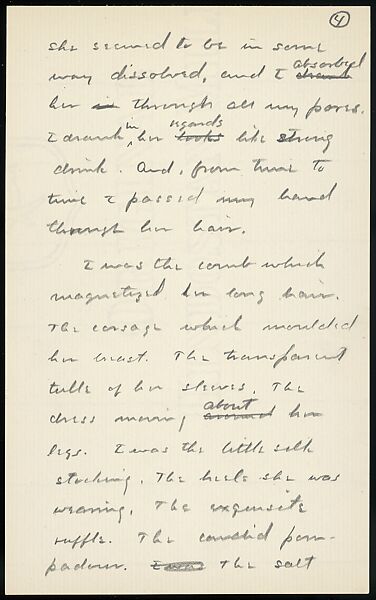 4
she seemed to be in some
way dissolved, and I drank absorbed
her in through all my pores.
I drank in her looks regards like strong
drink. And, from time to
time I passed my hand
through her hair.
I was the comb which
magnetized her long hair.
The corsage which moulded
her breast. The transparent
tulle of her sleeves. The
dress moving around about her
legs. I was the little silk
stocking. The heels she was
wearing. The exquisite
ruffle. The candid pom-
padour. I was The salt